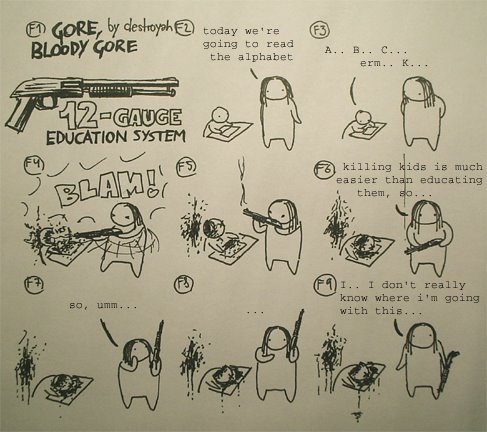 F1
GORE, by destroyah
BLOODY GORE
12-GAUGE
EDUCATION SYSTEM
F2
today we're
going to read
the alphabet
F3
A.. B.. C...
erm.. K...
F4
BLAM!
F5
F6
killing kids is much
easier than educating
them, so...
F7
so, umm...
F8
...
F9
I.. I don't really
know where i'm going
with this...